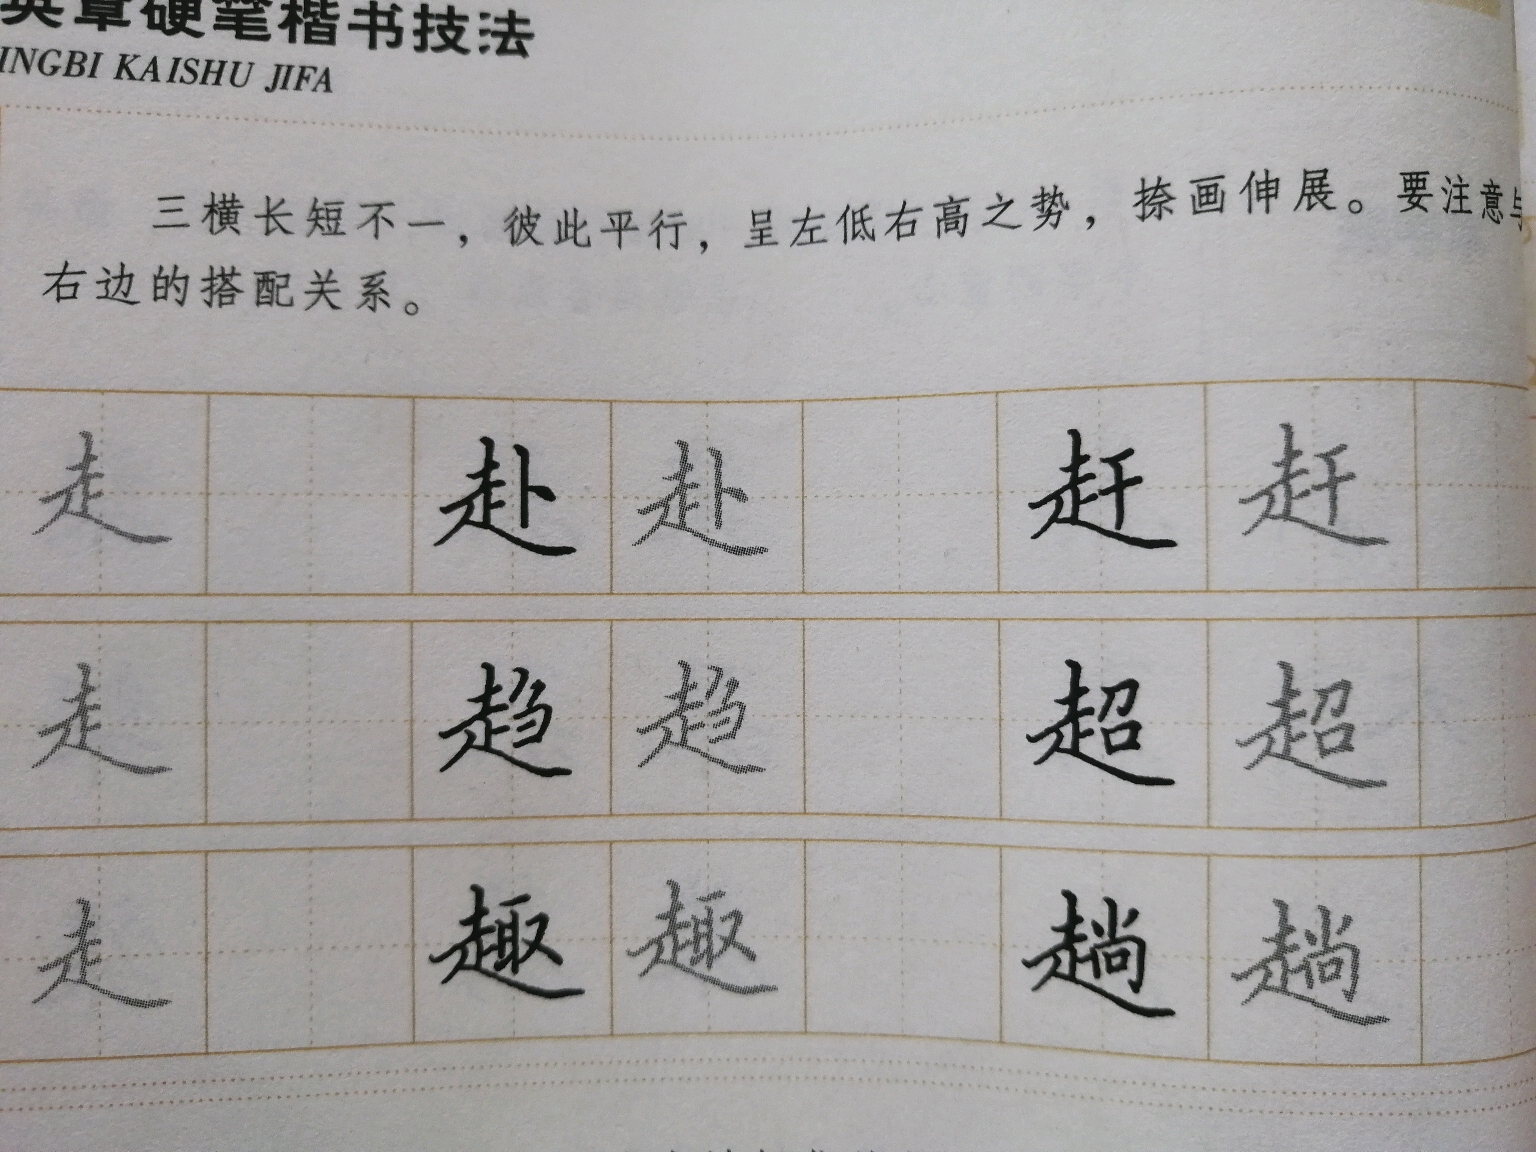 英章硬笔楷书技法
INGBI KAISHU JIFA
三横长短不一，彼此平行，呈左低右高之势，捺画伸展。要注意与
右边的搭配关系。
走 赴 赴 赶 赶
走 趋 趋 超 超
走 趣 趣 趟 趟